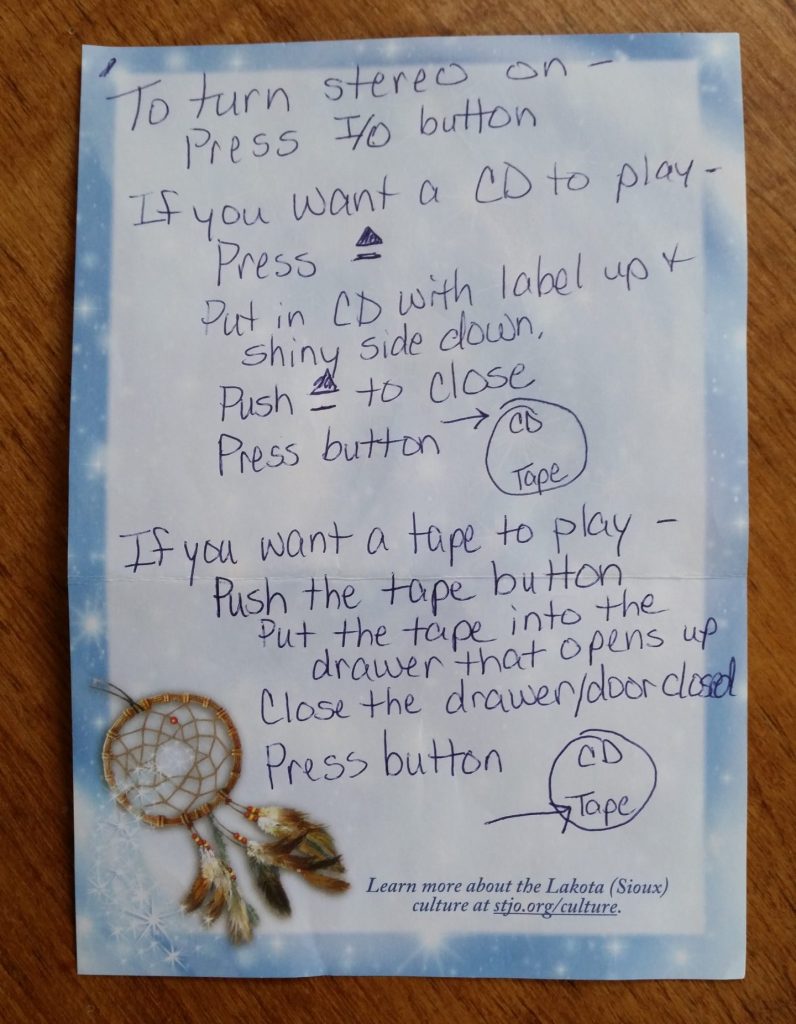 To turn stereo on -
Press I/O button
If you want a CD to play -
Press ⏏
Put in CD with label up &
shiny side down.
Push ⏏ to close
Press button → CD
Tape
If you want a tape to play -
Push the tape button
Put the tape into the
drawer that opens up
Close the drawer/door closed
Press button CD
→ Tape
Learn more about the Lakota (Sioux)
culture at stjo.org/culture.